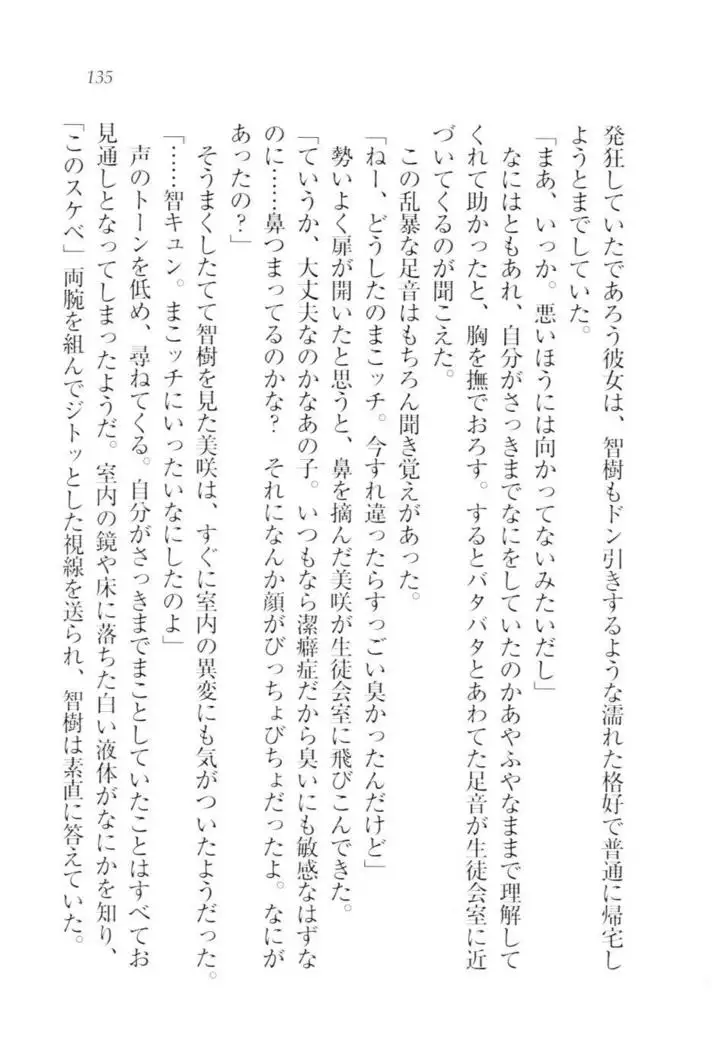 135
発狂していたであろう彼女は、智樹もドン引きするような濡れた格好で普通に帰宅し
ようとまでしていた。
「まあ、いっか。悪いほうには向かってないみたいだし」
なにはともあれ、自分がさっきまでなにをしていたのかあやふやなままで理解して
くれて助かったと、胸を撫でおろす。するとバタバタとあわてた足音が生徒会室に近
づいてくるのが聞こえた。
この乱暴な足音はもちろん聞き覚えがあった。
「ねー、どうしたのまこッチ。今すれ違ったらすっごい臭かったんだけど」
勢いよく扉が開いたと思うと、鼻を摘んだ美咲が生徒会室に飛びこんできた。
「ていうか、大丈夫なのかなあの子。いつもなら潔癖症だから臭いにも敏感なはずな
のに……鼻つまってるのかな？　それになんか顔がびっちょびちょだったよ。なにが
あったの？」
そうまくしたてて智樹を見た美咲は、すぐに室内の異変にも気がついたようだった。
「……智キュン。まこッチにいったいなにしたのよ」
声のトーンを低め、尋ねてくる。自分がさっきまでまことしていたことはすべてお
見通しとなってしまったようだ。室内の鏡や床に落ちた白い液体がなにかを知り、
「このスケベ」両腕を組んでジトッとした視線を送られ、智樹は素直に答えていた。